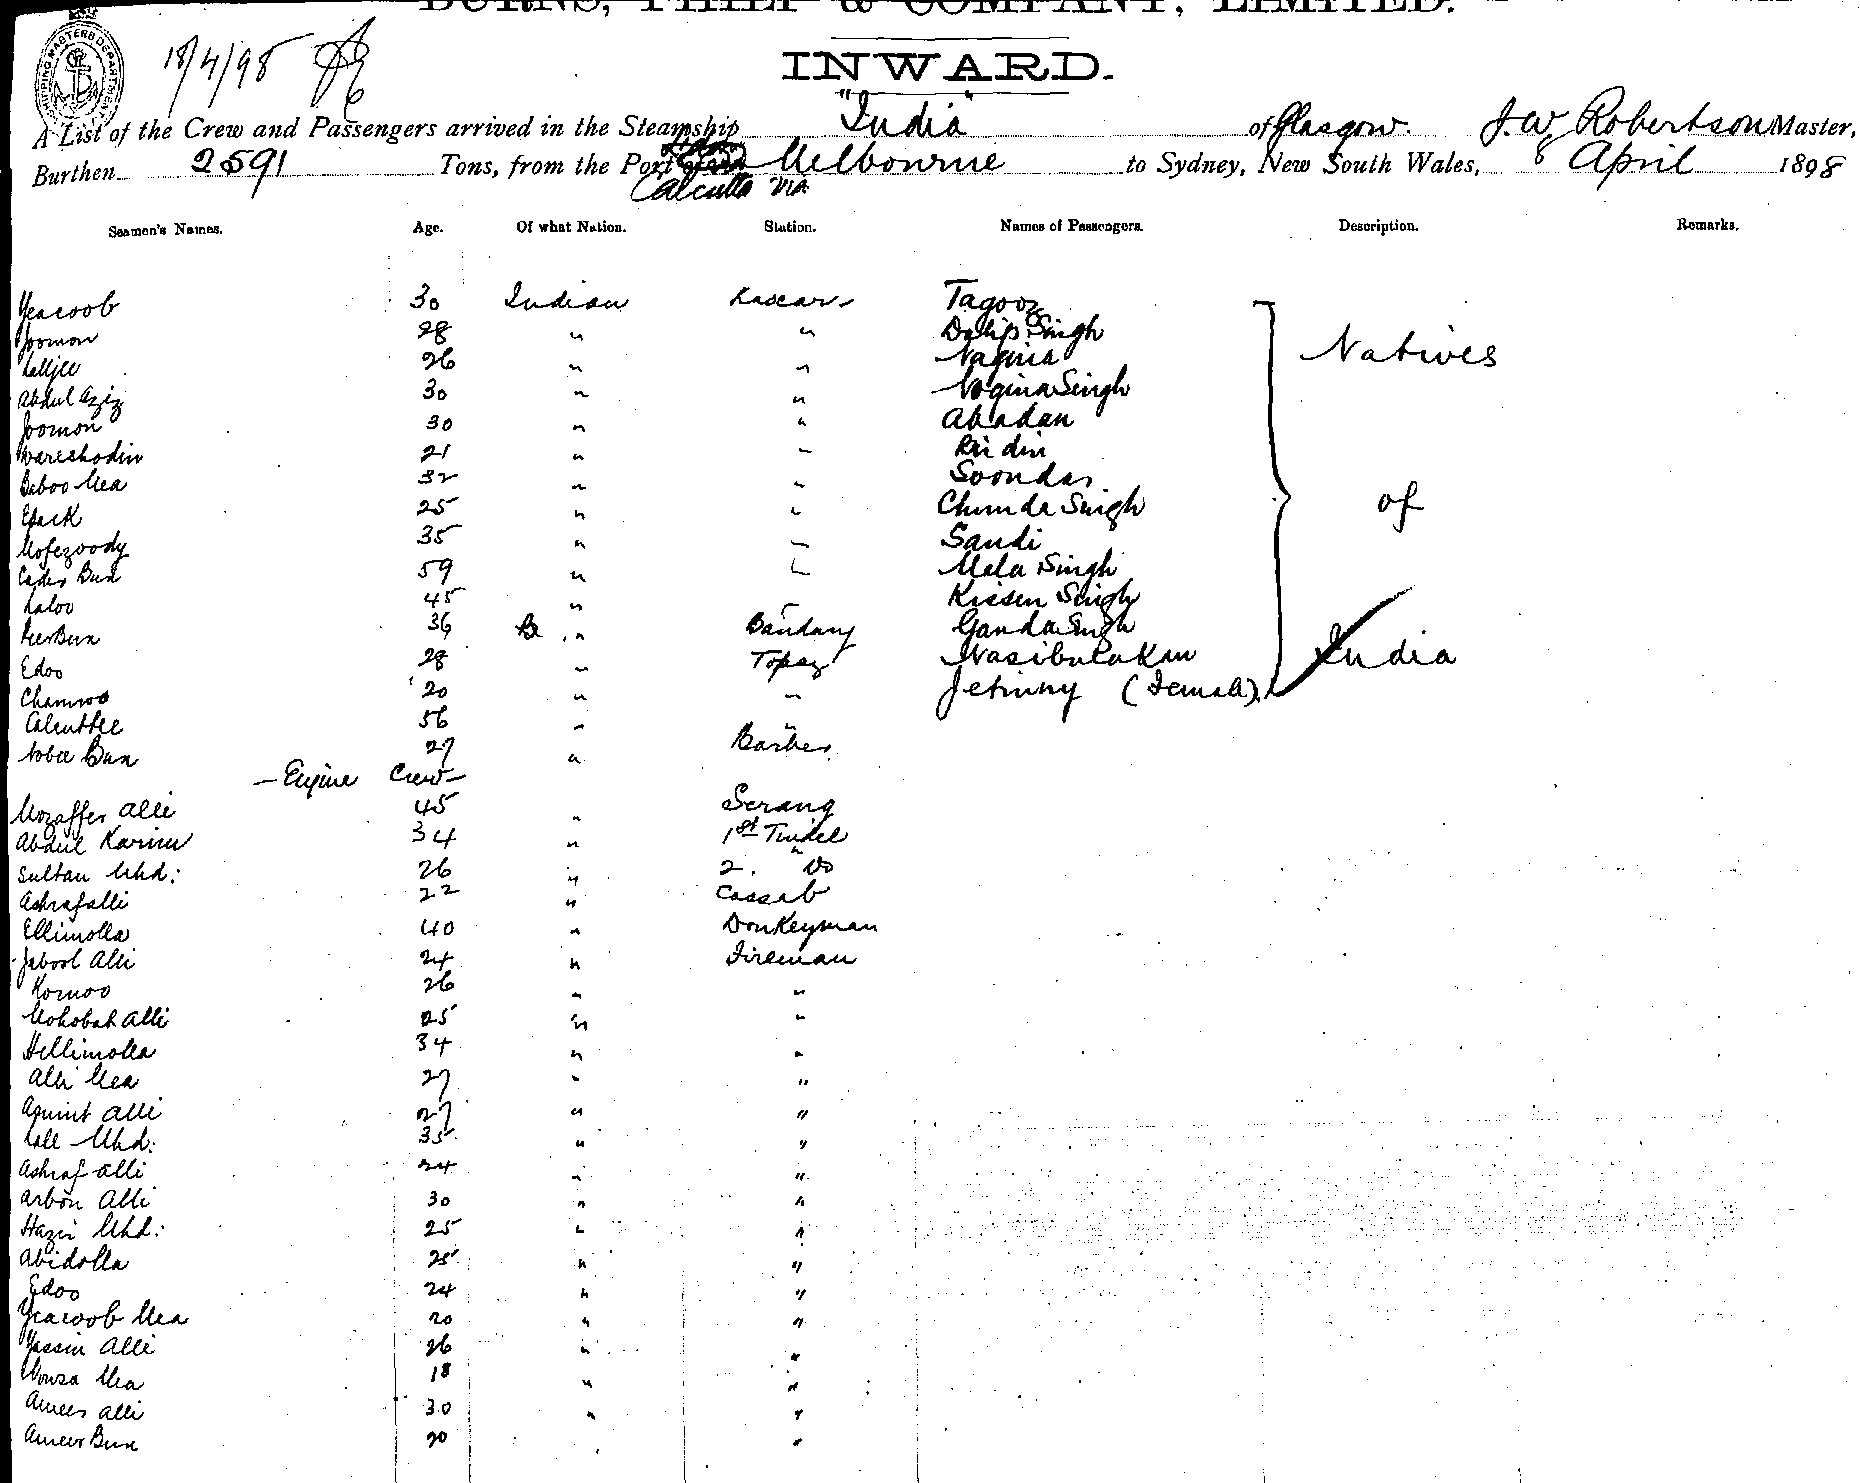 BURNS, PHILP & COMPANY, LIMITED.
SHIPPING MASTERS DEPARTMENT
18/4/98
INWARD.
A List of the Crew and Passengers arrived in the Steamship "India" of Glasgow. J. W. Robertson Master,
Burthen 2591 Tons, from the Port Melbourne to Sydney, New South Wales, 8 April 1898
Calcutta via
Seamen's Names. Age. Of what Nation. Station. Names of Passengers. Description. Remarks.
Yeacoob 30 Indian Lascar Tagooz
Joomon 28 " " Dalip Singh
Lalljee 26 " " Nagina Natives
Abdul Aziz 30 " " Nogina Singh
Joomon 30 " " Abadan
Wareshodin 21 " " din
Baboo Mea 32 " " Soondar
Epack 25 " " Chunda Singh of
Mofezoody 35 " " Sandi
Cader Bux 59 " " Mala Singh
Laloo 45 " " Kissen Singh
Peer Bux 36 " Bandary Ganda Singh
Edoo 28 " Topaz Nasibulakan India
Chamroo 20 " " Jetinny (Female)
Calcuttee 56 " "
Nobee Bux 27 " Barber
— Engine Crew —
Mozaffer Alli 45 " Serang
Abdul Karim 34 " 1st Tindel
Sultan Mhd: 26 " 2. " Do
Ashrafalli 22 " Cassab
Ellimolla 40 " Donkeyman
Jabool Alli 24 " Fireman
Komoo 26 " "
Mohobat Alli 25 " "
Hellimolla 34 " "
Alli Mea 27 " "
Alli 27 " "
Lall Mhd: 35 " "
Ashraf Alli 24 " "
Arbon Alli 30 " "
Hazir Mhd: 25 " "
Abidolla 25 " "
Edoo 24 " "
Yeacoob Mea 20 " "
Yassin Alli 26 " "
Mowsa Mea 18 " "
Ameer Alli 30 " "
Ameer Bux 20 "